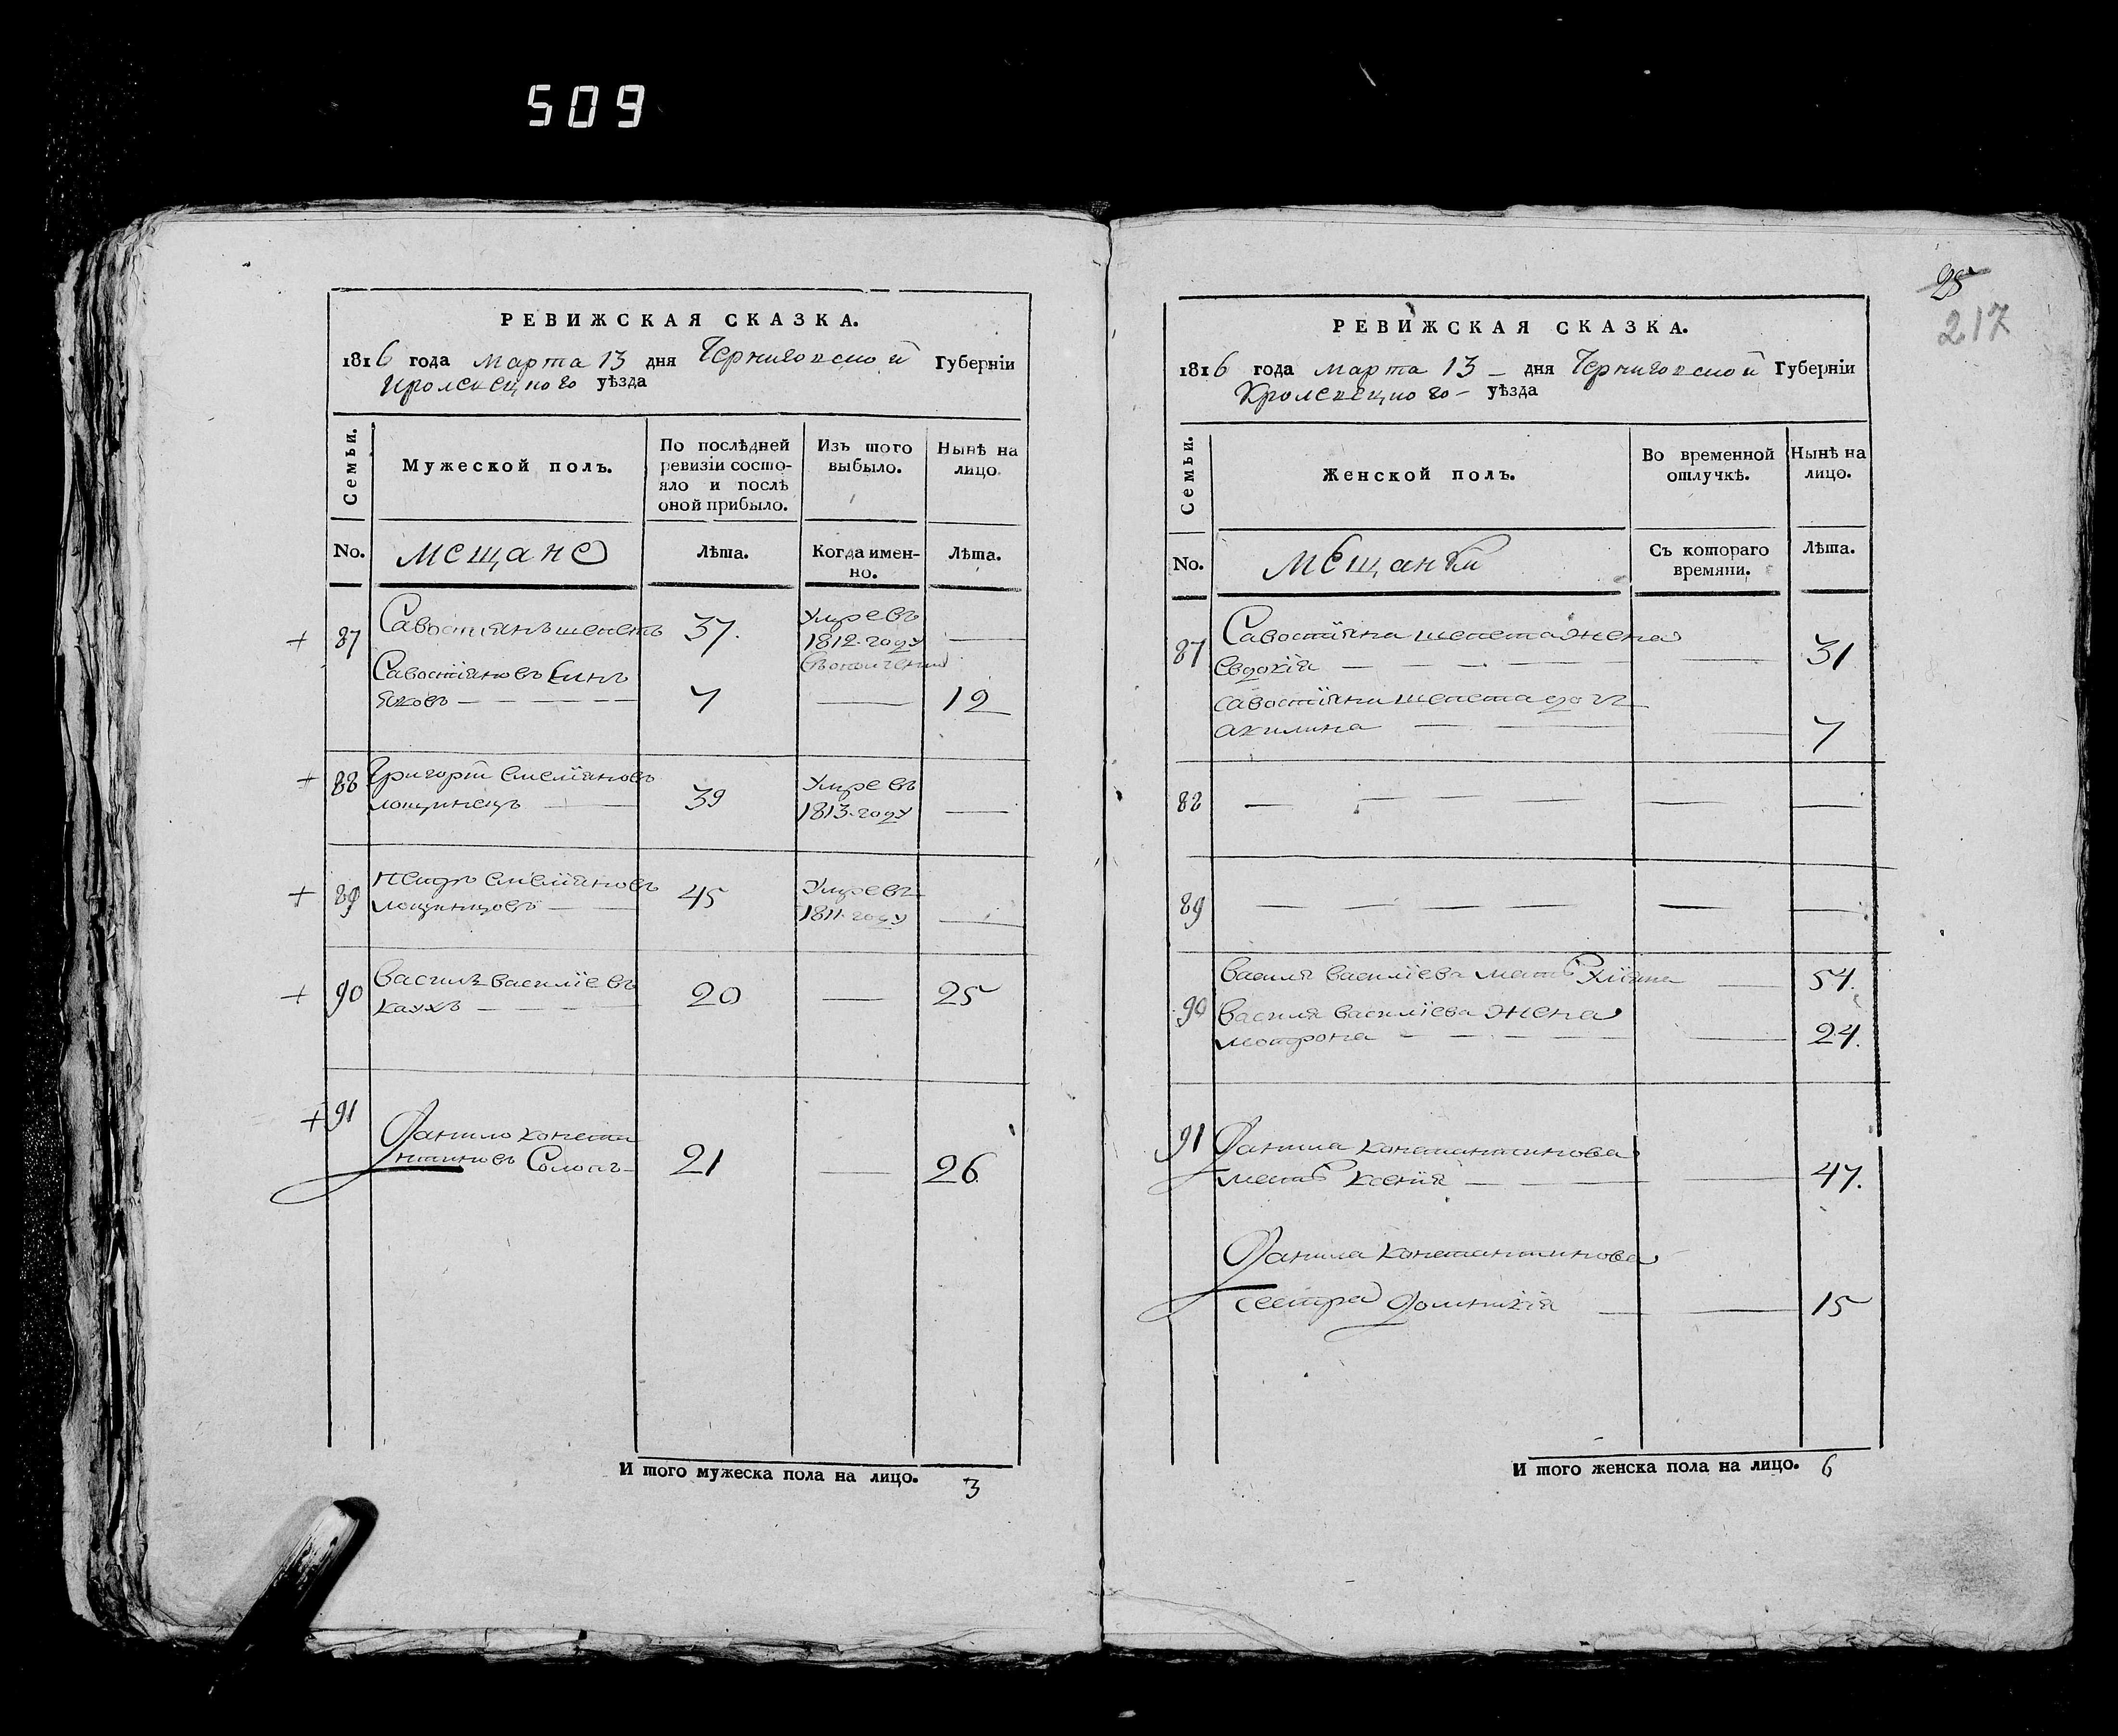 509
РЕВИЖСКАЯ СКАЗКА.
1816 года марта 13 дня Черниговской Губернїи
Кролевецкого уѣзда
Семьи.
Мужеской полъ.
По послѣдней ревизїи состояло и послѣ оной прибыло.
Изъ того выбыло.
Нынѣ на лицо.
No.
мещане
Лѣта.
Когда именно.
Лѣта.
+ 87 Савостïянъ шепетъ 37. Умре въ
1812 году
Савостïяновъ синъ
яковъ 7 12
+ 88 Григорïй емелïяновъ Умре въ
39 1813 году
+ 89 емелïяновъ 45 Умре въ
1811 году
+ 90 василь василïевъ 20 25
каухъ
+ 91
Данило конста
нтиновъ 21 26
И того мужеска пола на лицо. 3
25
217
РЕВИЖСКАЯ СКАЗКА.
1816 года марта 13 дня Черниговской Губернїи
Кролевецкого уѣзда
Семьи.
Женской полъ.
Во временной отлучкѣ.
Нынѣ на лицо.
No.
мещанки
Съ котораго времяни.
Лѣта.
87 Савостïяна шепета жена
Евдокïя 31
савостïяна шепета доч
акилина 7
88
89
василя василïева мать Улïяна 54.
90 василя василïева жена
мотрона 24.
91 Данила константинова
мать ксенïя 47.
Данила константинова
сестра домникïя 15
И того женска пола на лицо. 6